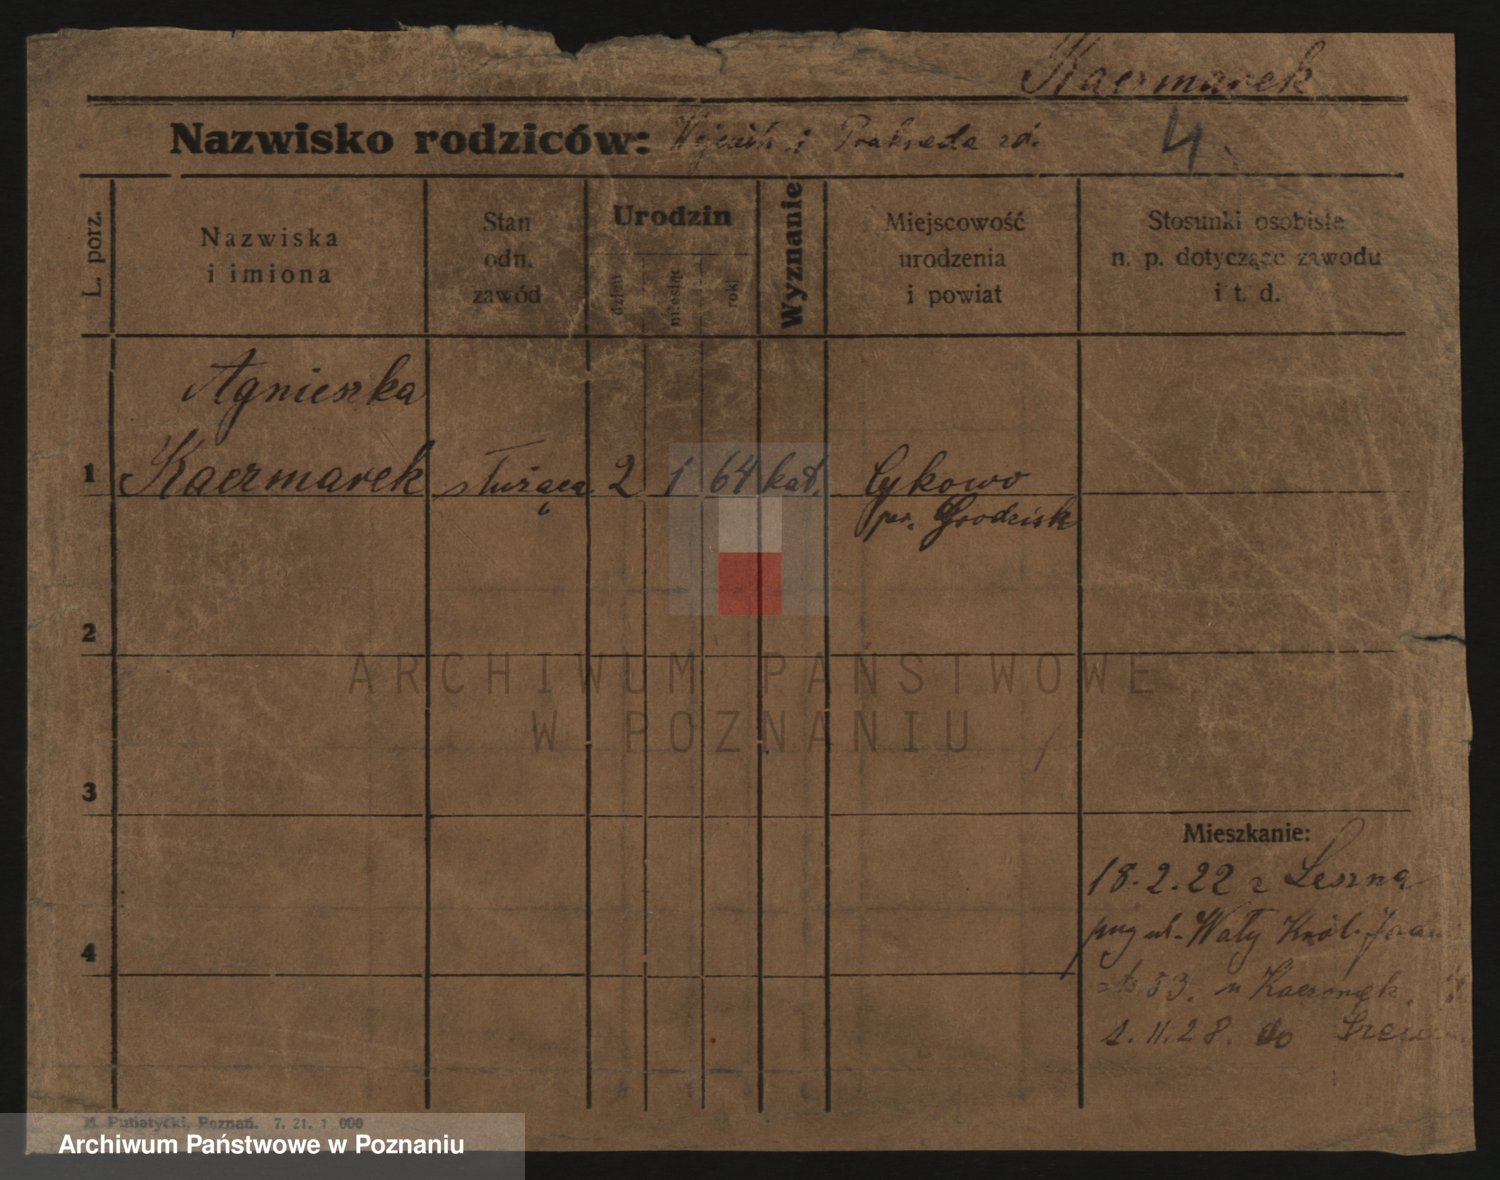 Kaczmarek
Nazwisko rodziców: Wojciech i Prakseda zd. 4
L. porz.
Nazwiska
i imiona
Stan
odn.
zawód
Urodzin
dzień
miesiąc
rok
Wyznanie
Miejscowość
urodzenia
i powiat
Stosunki osobiste
n. p. dotyczące zawodu
i t. d.
Agnieszka
1 Kaczmarek służąca 2 1 64 kat. Cykowo
pow. Grodzisk
2
ARCHIWUM PAŃSTWOWE
W POZNANIU
3
Mieszkanie:
18.2.22 z Leszna
ul. Wały Król.
53. u
1.11.28. do
4
M. Putiatycki, Poznań. 7. 21. 1 000
Archiwum Państwowe w Poznaniu